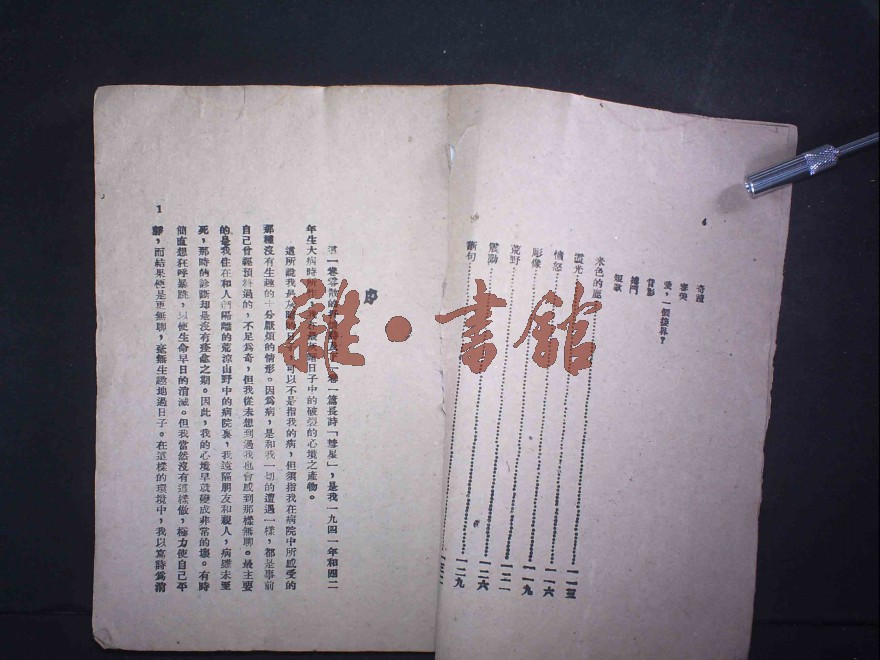 4
奇蹟
寄獎
愛，一個接界？
背影
撞門
短歌
米色的鹿
靈光……一一三
憤怒……一一六
彫像……一一九
荒野……一二一
震動……一二六
斷句……一二九
1
序
這一卷零散的
一篇長詩「彗星」，是我一九四一年和四二
年生大病時所
日子中的破裂的心境之產物。
這所說我
的日子，可以不是指我的病，但須指我在病院中所感受的
那種沒有生趣的十分厭煩的情形。因爲病，是和我一切的遭遇一樣，都是事前
自己曾經預料過的，不足爲奇，但我從未想到過我也會感到那樣無聊。最主要
的是我住在和人們隔離的荒涼山野中的病院裏，我遠隔朋友和親人，病雖未至
死，那時的診斷却是沒有痊愈之期。因此，我的心境早就變成非常的壞。有時
簡直想狂呼暴跳，以使生命早日的消滅。但我當然沒有這樣做，極力使自己平
靜，而結果便是更無聊，毫無生趣地過日子。在這樣的環境中，我以寫詩爲消
雜·書館